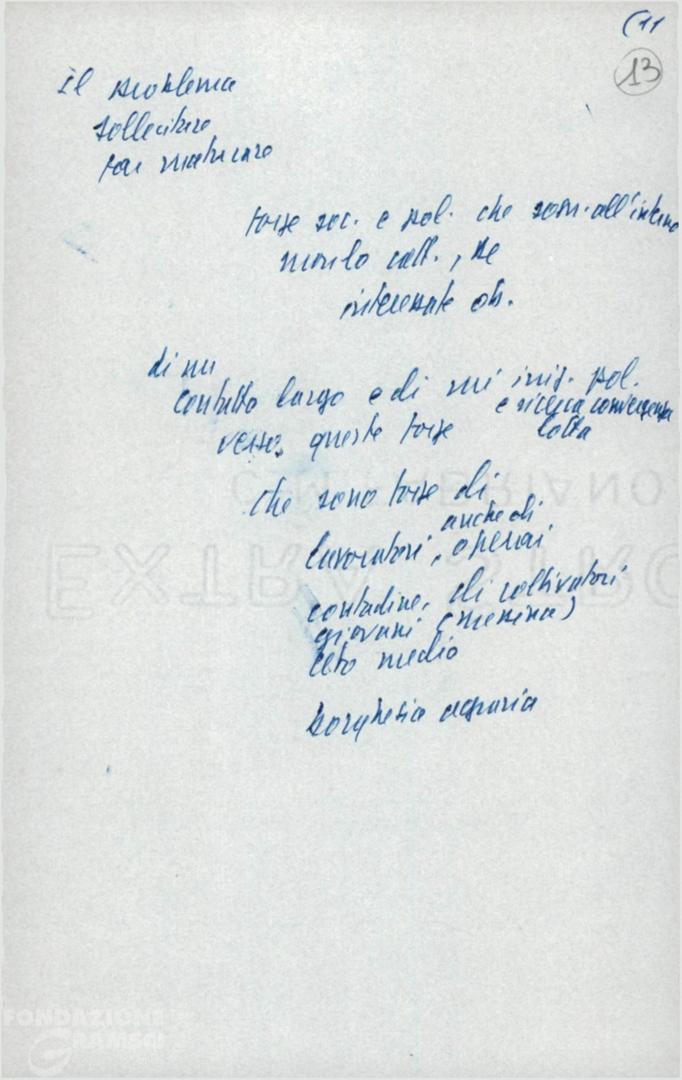 (11
13
Il problema
sollecitare
far maturare
forze soc. e pol. che sono all'interno
mondo catt., se
interessate ob.
di un
contatto largo e di una iniz. pol.
e ricerca convergenza
verso queste forze lotta
che sono forze di
anche di
lavoratori, operai
contadine, di coltivatori
giovani (Messina)
ceto medio
borghesia agraria
C.M. FABRIANO
EXTRA STRO
FONDAZIONE
GRAMSCI